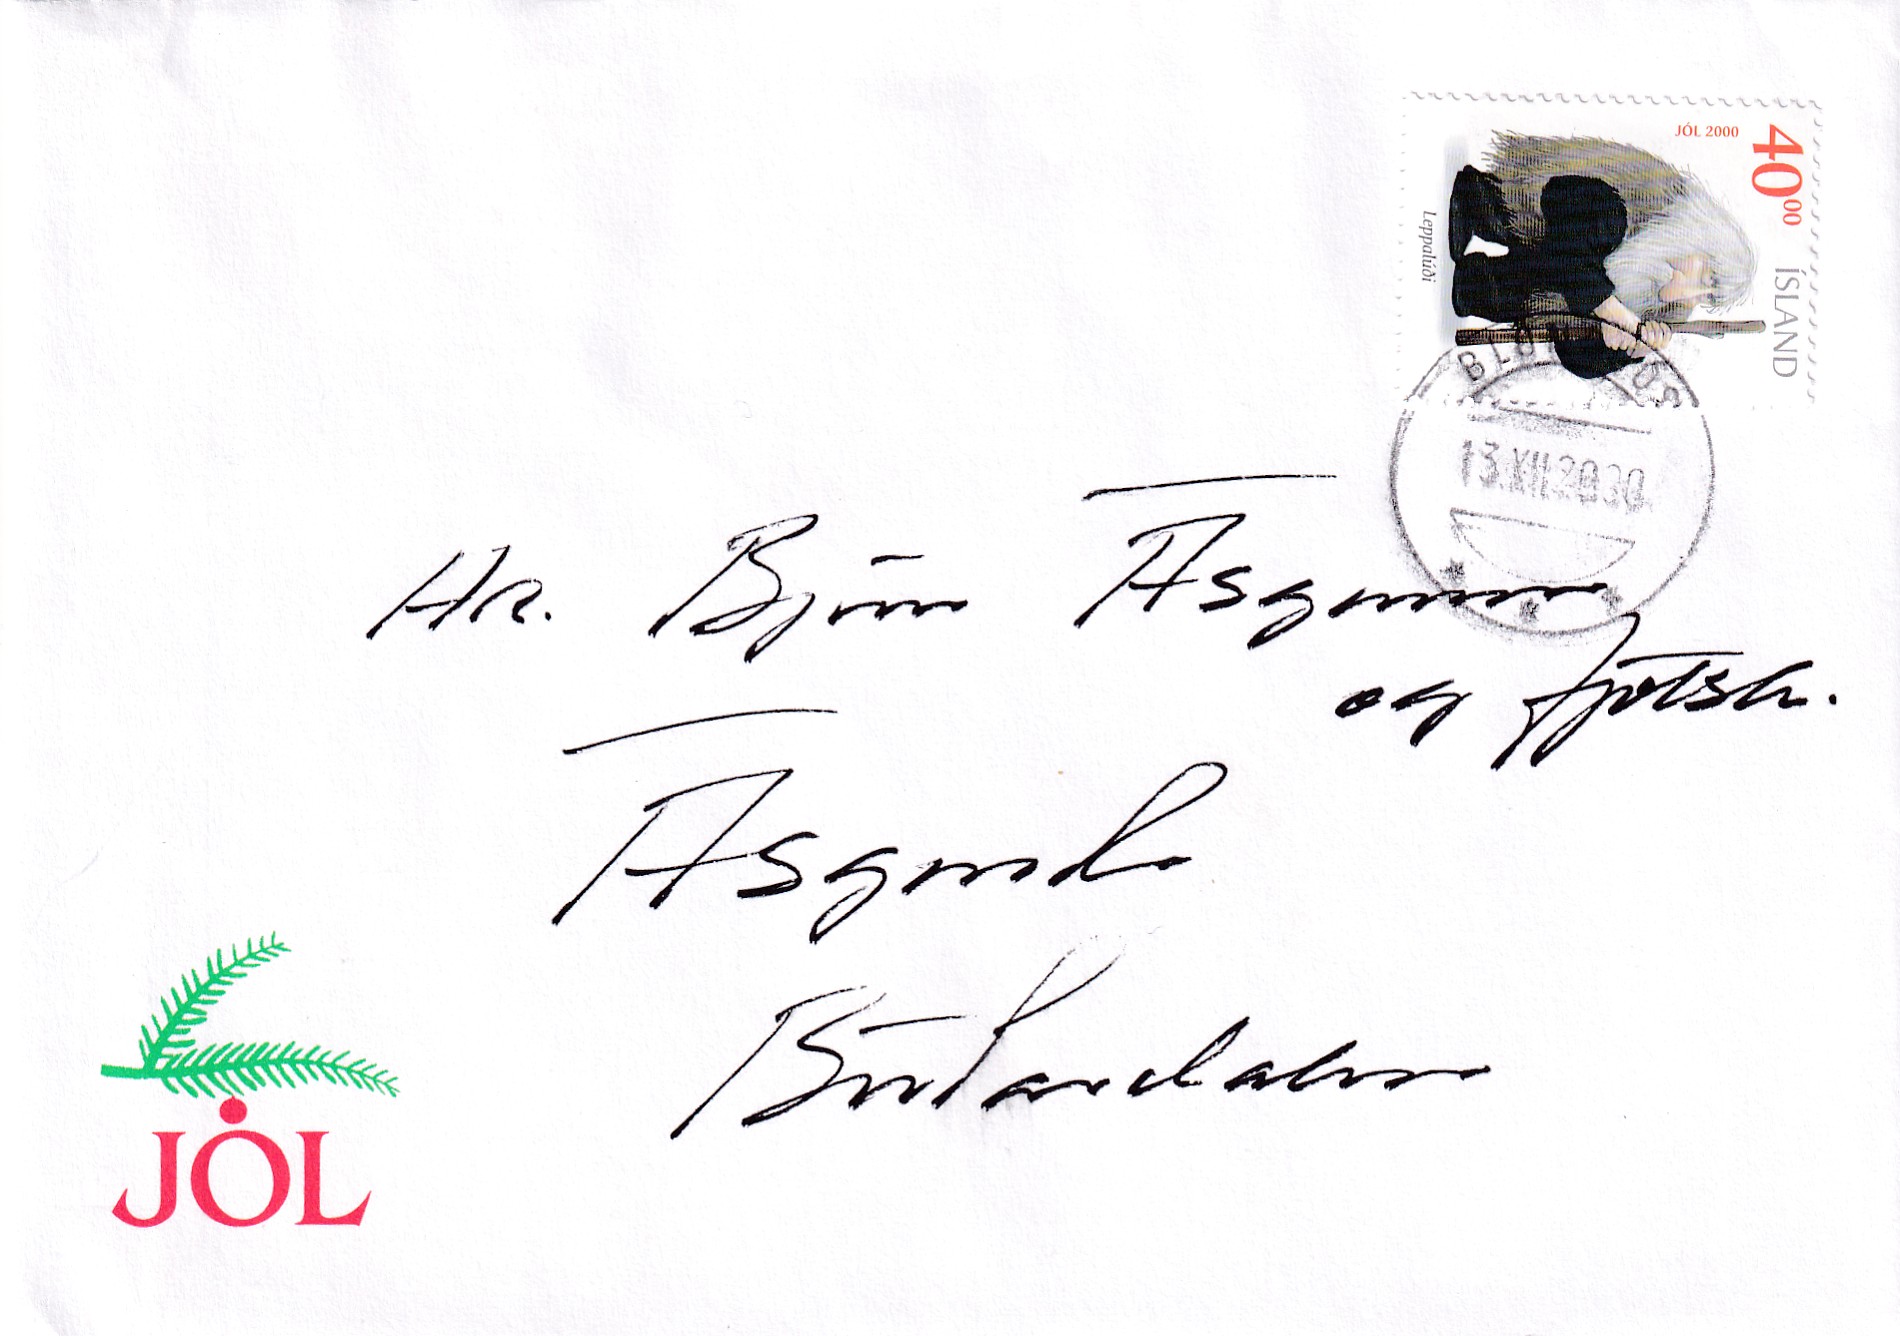 JÓL 2000
40⁰⁰
ÍSLAND
Leppalúði
BLÖNDUÓS
13.XII.2000
Hr. Björn Ásgeirsson
og fjölsk.
Ásgarði
Búðardalur
JÓL